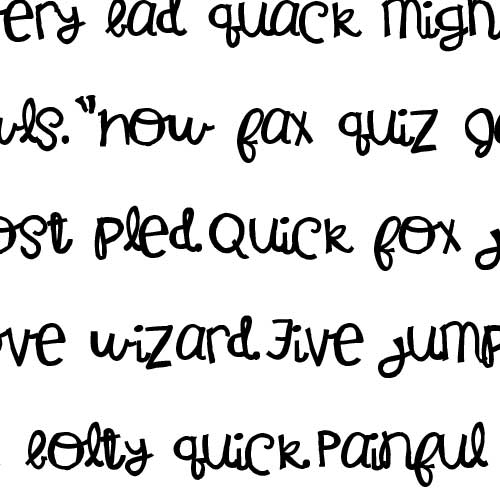 ery bad quack migh
wls."now fax quiz
ost pled.Quick fox j
ove wizard.Five jump
bolty quick.Painful